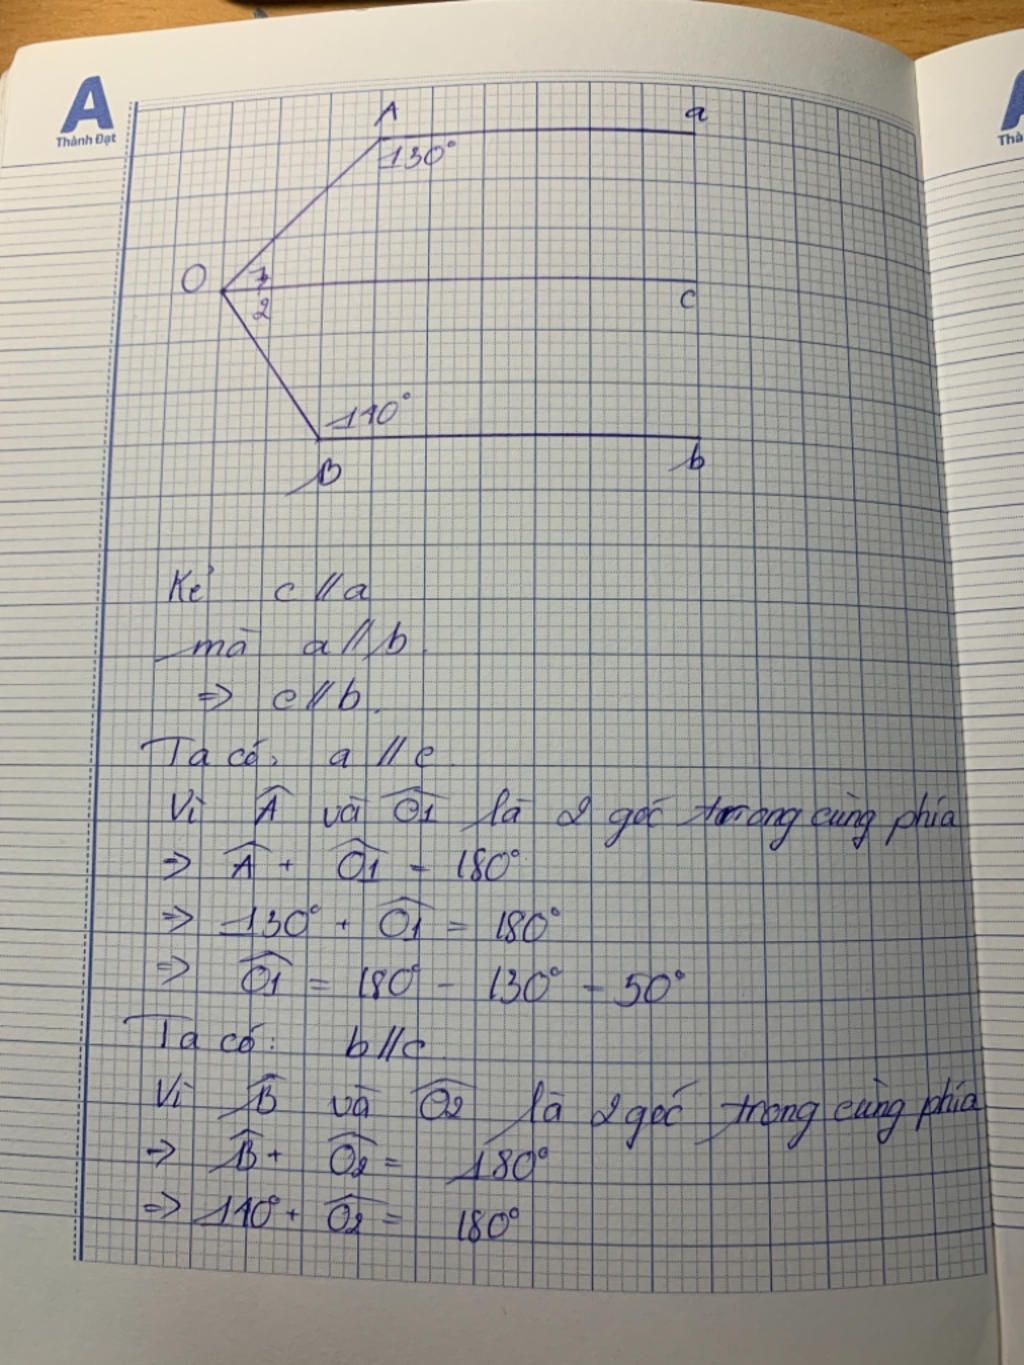 A
Thành Đạt
A
Thà
A a
130°
O 1
2
c
110°
B b
Kẻ c // a
mà a // b.
=> c // b.
Ta có: a // c.
Vì Â và Ô1 là 2 góc trong cùng phía
=> Â + Ô1 = 180°
=> 130° + Ô1 = 180°
=> Ô1 = 180° - 130° = 50°
Ta có: b // c
Vì B̂ và Ô2 là 2 góc trong cùng phía
=> B̂ + Ô2 = 180°
=> 110° + Ô2 = 180°